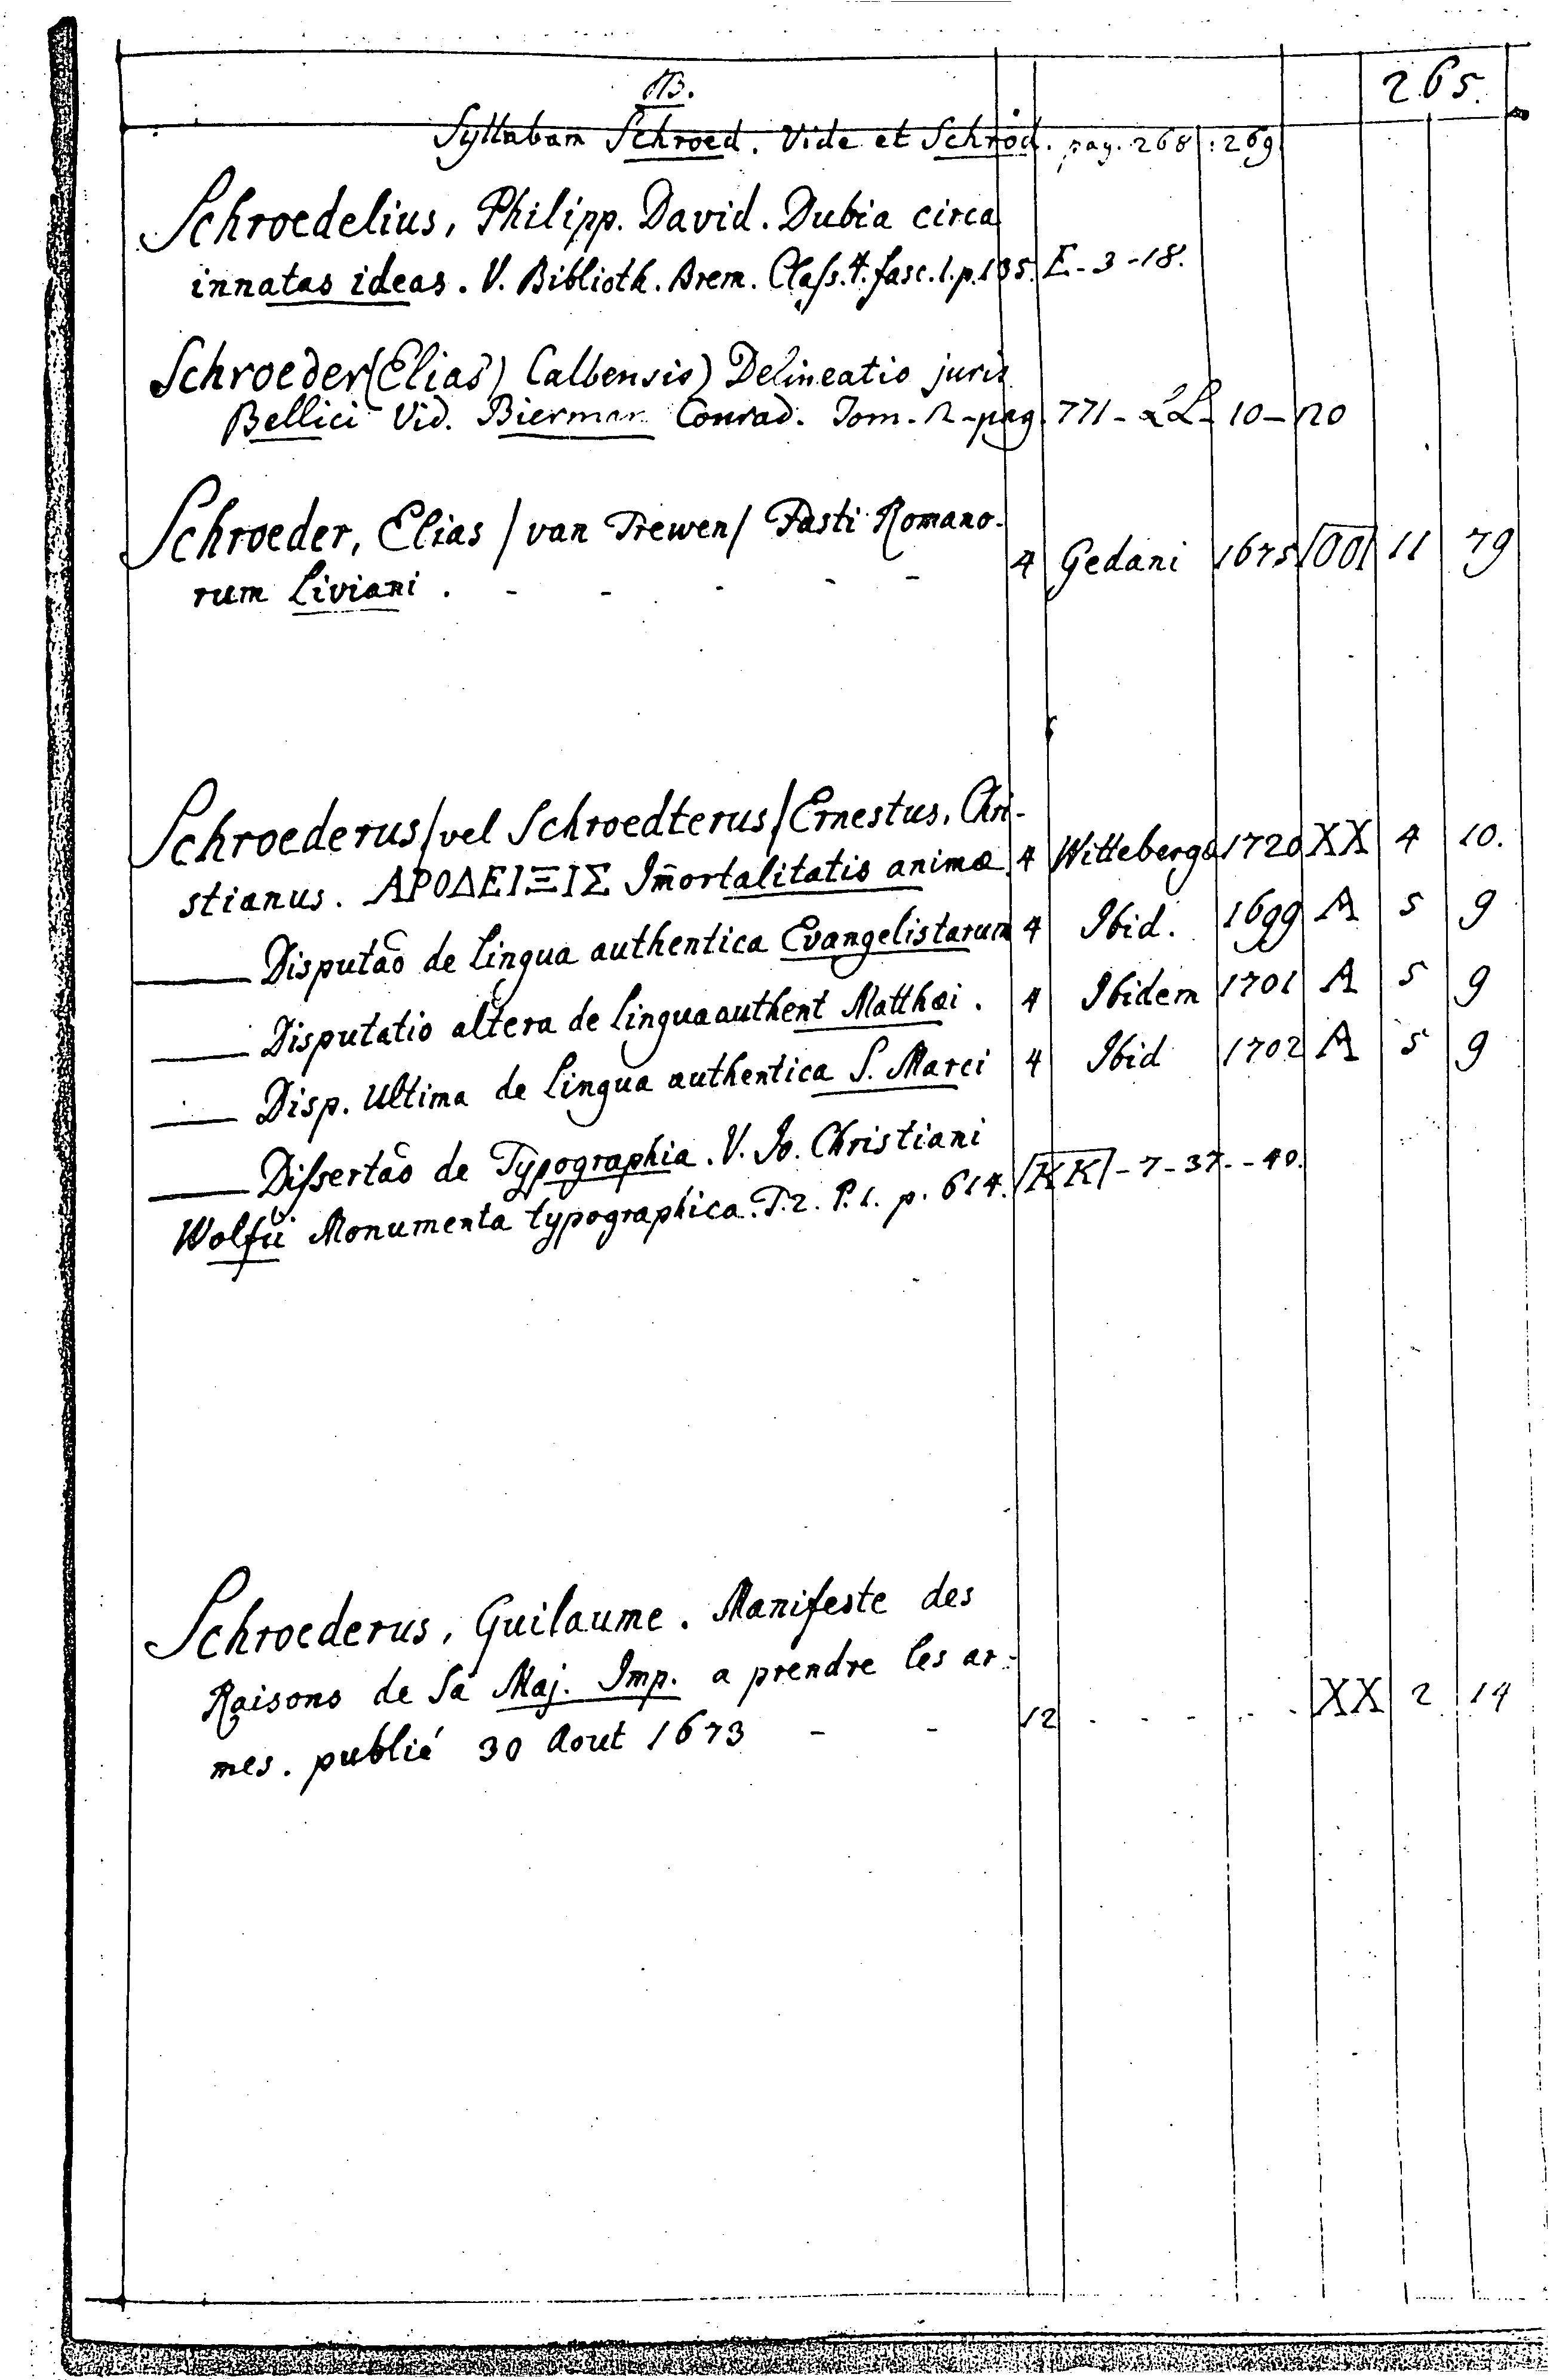 NB. 265.
Syllabam Schroed. Vide et Schröd. pag. 268 : 269
Schroedelius, Philipp. David. Dubia circa
innatas ideas. V. Biblioth. Brem. Class. 4. fasc. 1. p. 135. E - 3 - 18.
Schroeder (Elias) Calbensis) Delineatio juris
Bellici Vid. Bierman Conrad. Tom. 2 - pag. 771 - LL - 10 - 20
Schroeder, Elias / van Trewen / Fasti Romano-
rum Liviani . - - - - - 4 Gedani 1675 |OO| 11 79
Schroederus / vel Schroedterus / Ernestus, Chri-
stianus. ΑΡΟΔΕΙΞΙΣ Im̄ortalitatis animæ 4 Wittebergæ 1720 XX 4 10.
—— Disputao̅ de lingua authentica Evangelistarum 4 Ibid. 1699 A 5 9
—— Disputatio altera de lingua authent Matthæi . 4 Ibidem 1701 A 5 9
—— Disp. Ultima de lingua authentica S. Marci 4 Ibid 1702 A 5 9
—— Dissertao̅ de Typographia. V. Jo. Christiani
Wolfii Monumenta typographica. T. 2. P. 1. p. 614. |KK| - 7 - 37 - - 40.
Schroederus, Guilaume. Manifeste des
Raisons de Sa Maj. Imp. a prendre les ar-
mes. publié 30 Aout 1673 - - 12 - - - - - XX 2 14